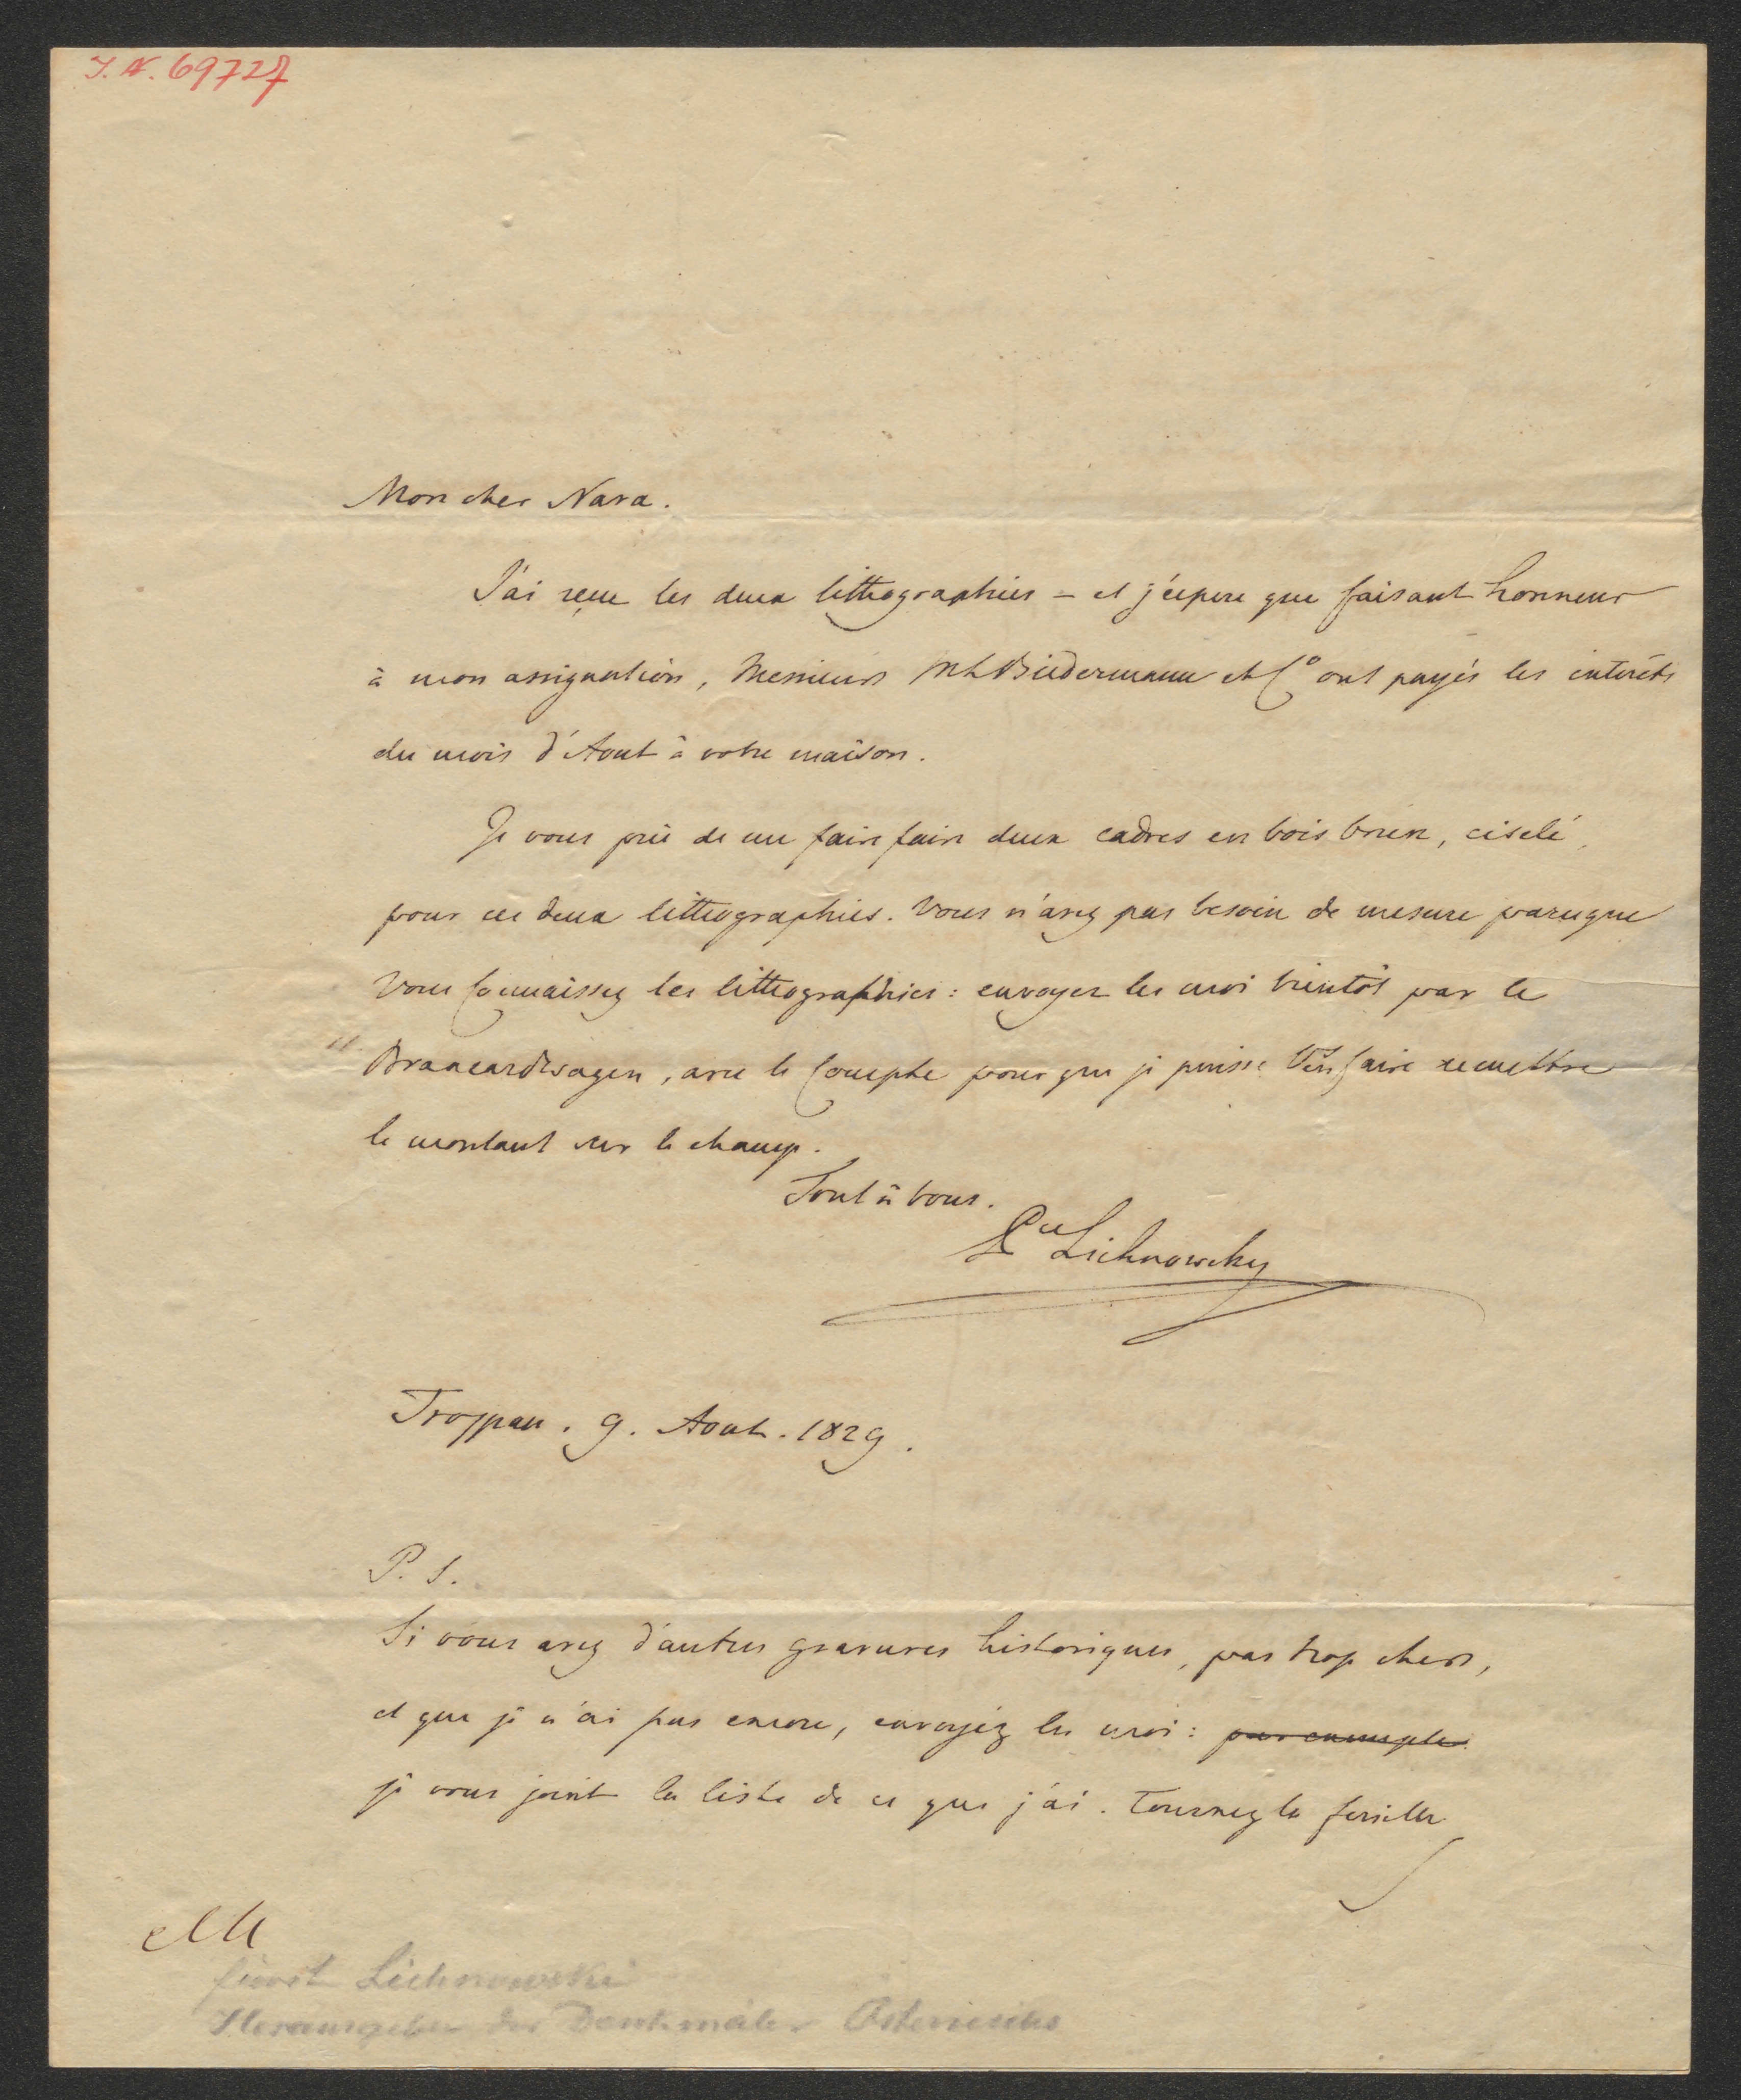 I. N. 69727
Mon cher Nava.
J'ai reçu les deux litthographies – et j'espere que faisant honneur
à mon assignation, Messieurs ML Biedermann et Co ont payés les interêts
du mois d'Aout à votre maison.
Je vous prie de me faire faire deux cadres en bois brun, ciselé,
pour ces deux litthographies. Vous n'avez pas besoin de mesure parceque
vous connaissez les litthographies: envoyez les moi bientôt par le
Brancardwagen, avec le Compte pour que je puisse faire remettre
le montant sur le champ.
Tout à vous.
Pce Lichnowsky
Troppau. 9. Aout. 1829.
P. S.
Si vous avez d'autres gravures historiques, pas trop chers,
et que je n'ai pas encore, envoyéz les moi: par exemple
je vous joint la liste de ce que j'ai. Tournez la feuille
Fürst Lichnowski
Herausgeber der Denkmäler Österreichs